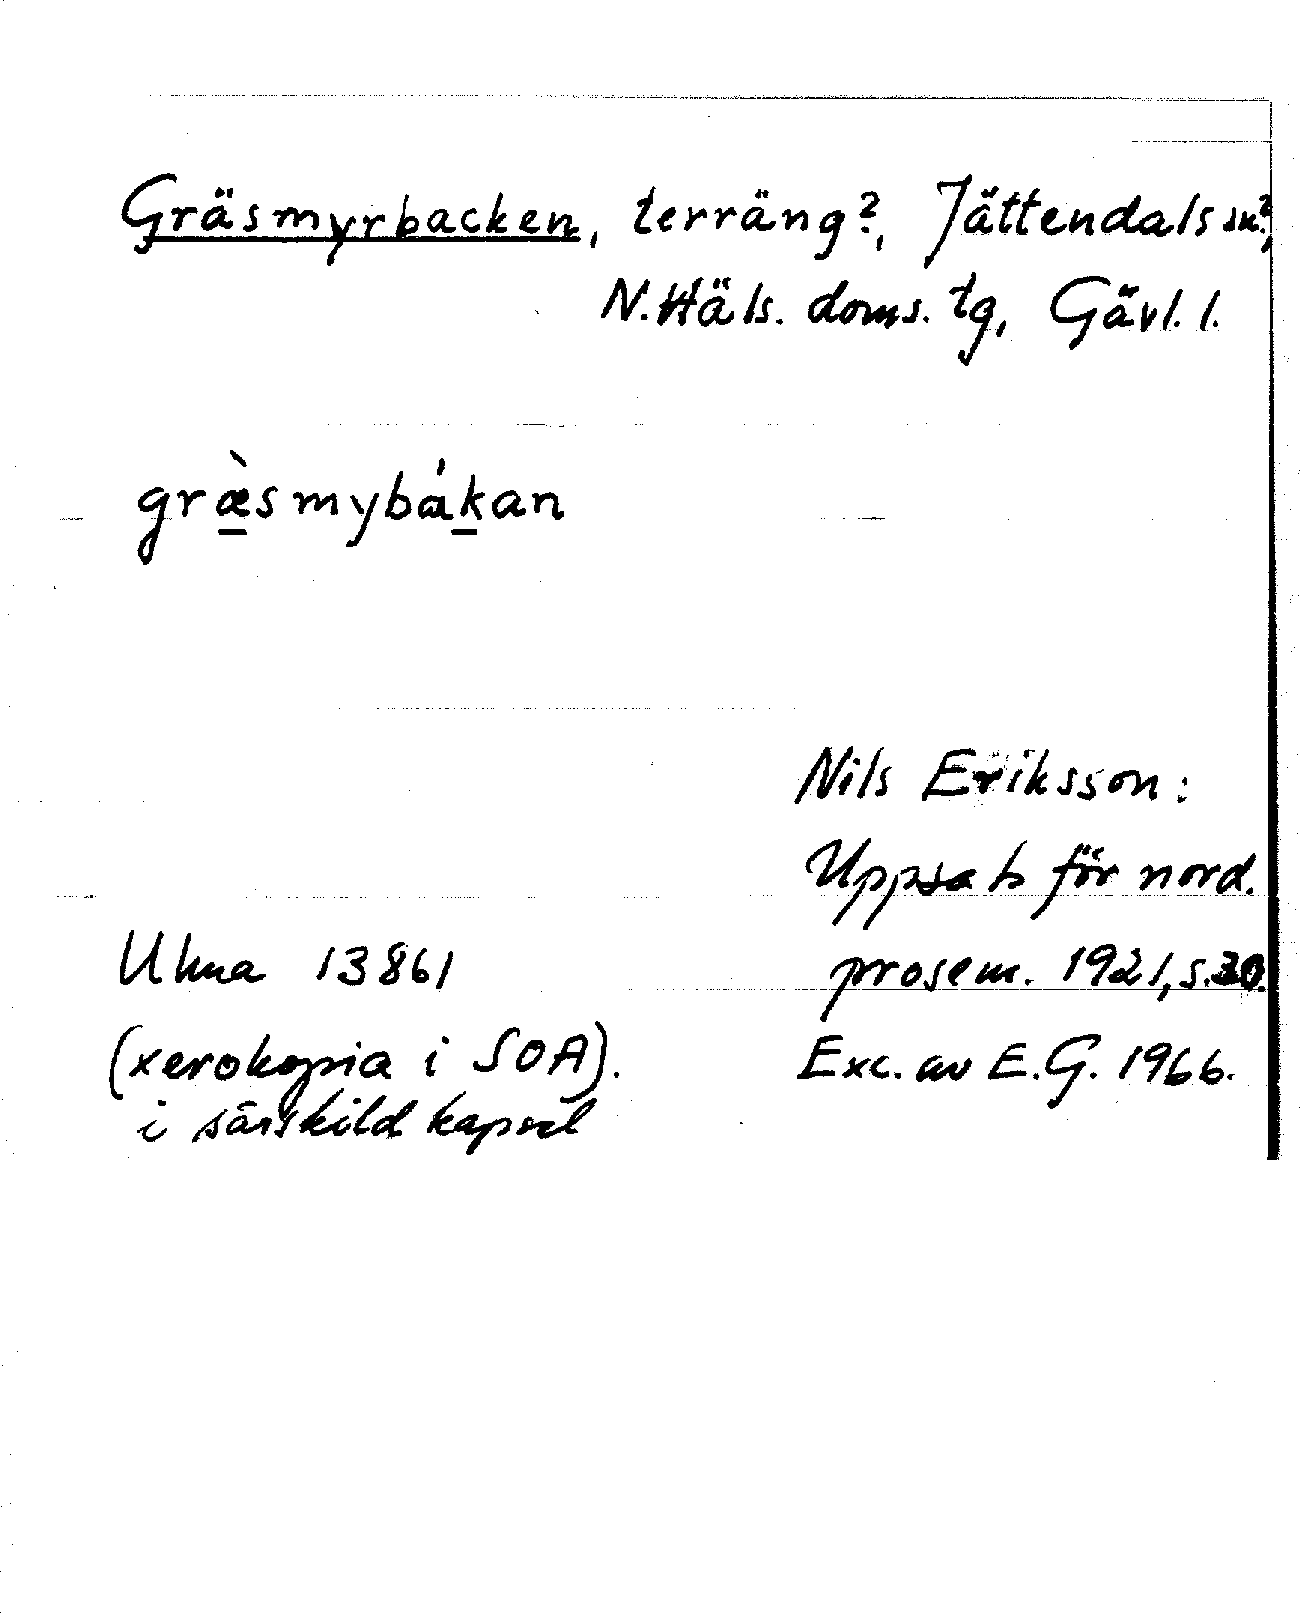 Gräsmyrbacken, terräng?, Jättendals sn?,
N. Häls. doms. tg, Gävl. l.
græ̀smybákan
Nils Eriksson:
Uppsats för nord.
prosem. 1921, s. 30.
Exc. av E.G. 1966.
Ulma 13861
(xerokopia i SOA).
i särskild kapsel